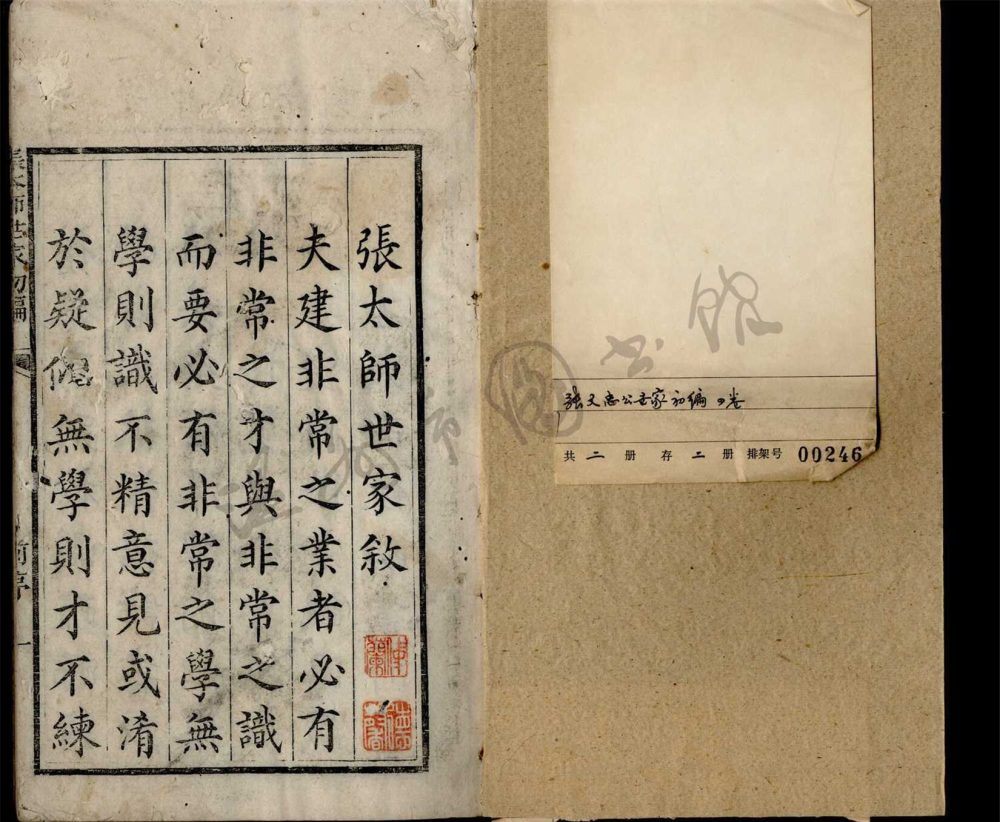 张文忠公世家初編 四卷
共 二 册 存 二 册 排架号 00246
張太師世家敘
夫建非常之業者必有
非常之才與非常之識
而要必有非常之學無
學則識不精意見或淆
於疑無學則才不練
張太師世家初編 前序 一
温州市图书馆